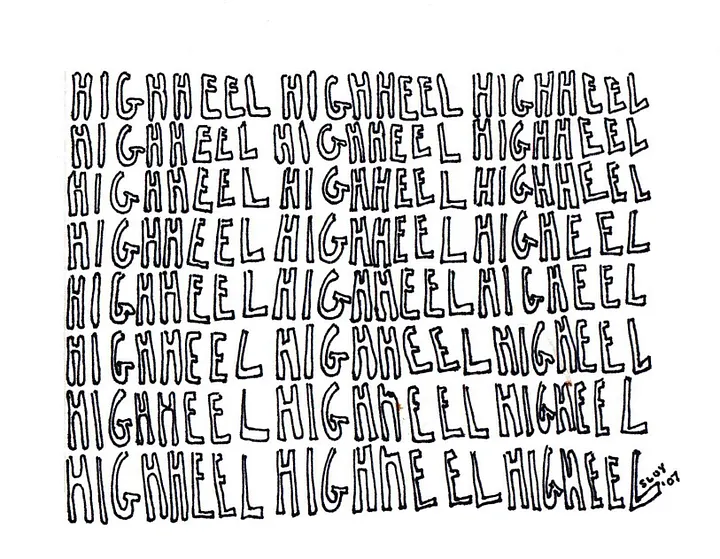 HIGHHEEL HIGHHEEL HIGHHEEL
HIGHHEEL HIGHHEEL HIGHHEEL
HIGHHEEL HIGHHEEL HIGHHEEL
HIGHHEEL HIGHHEEL HIGHEEL
HIGHHEEL HIGHHEEL HIGHEEL
HIGHHEEL HIGHHEEL HIGHEEL
HIGHHEEL HIGHhEEL HIGHEEL
HIGHHEEL HIGHhEEL HIGHEEL
'07